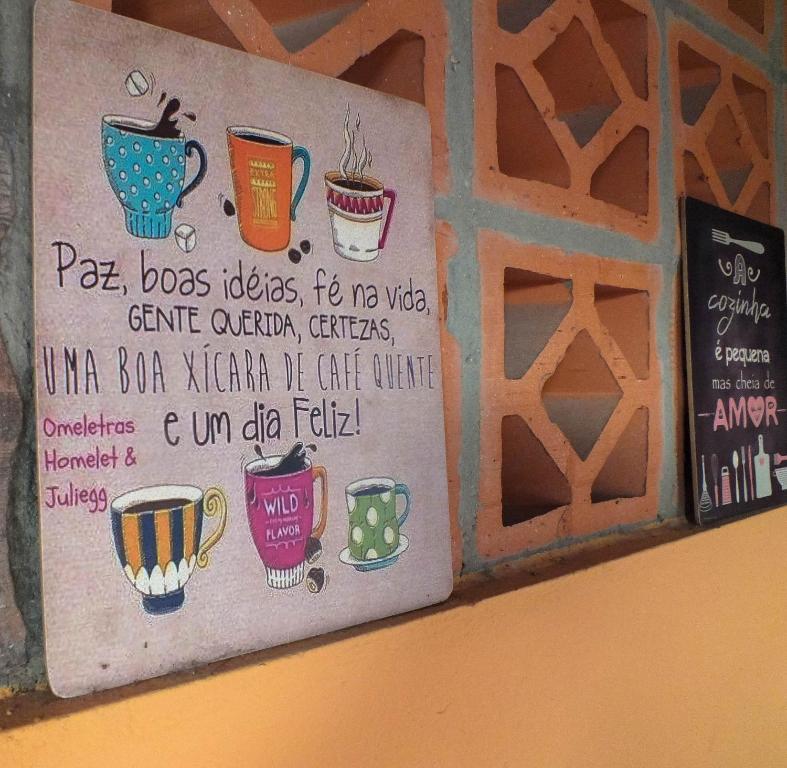 STRONG
Paz, boas idéias, fé na vida,
GENTE QUERIDA, CERTEZAS,
UMA BOA XÍCARA DE CAFÉ QUENTE
e um dia Feliz!
Omeletras
Homelet &
Juliegg
WILD
FLAVOR
A
cozinha
é pequena
mas cheia de
AMOR